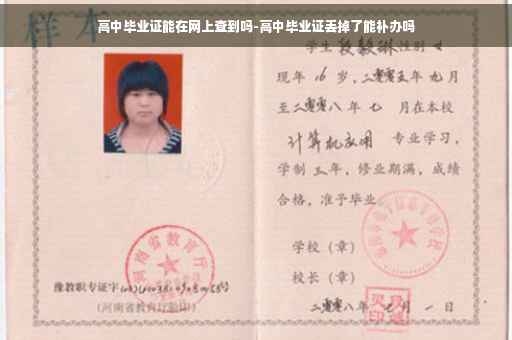 高中毕业证能在网上查到吗-高中毕业证丢掉了能补办吗
样本
学生段毅琳性别女
现年16岁，二零零五年九月
至二零零八年七月在本校
计算机应用 专业学习，
学制三年，修业期满，成绩
合格，准予毕业
学校（章）
校长（章）
二零零八年七月一日
河南省教育厅
豫教职专证字
（河南省教育厅验印）